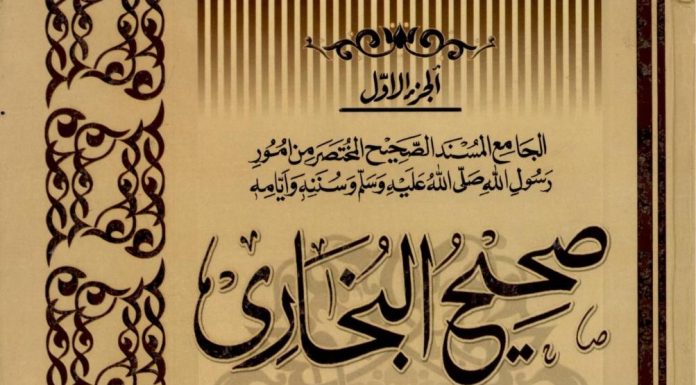 الجزء الاوّل
الجَامِع المُسْنَد الصَّحِيْح المُخْتَصَر مِنْ اُمُوْرِ
رَسُوْلِ اللهِ صَلَّى اللهُ عَلَيْهِ وَسَلَّمَ وَسُنَنِهٖ وَاَيَّامِهٖ
صَحِيْحُ البُخَارِى